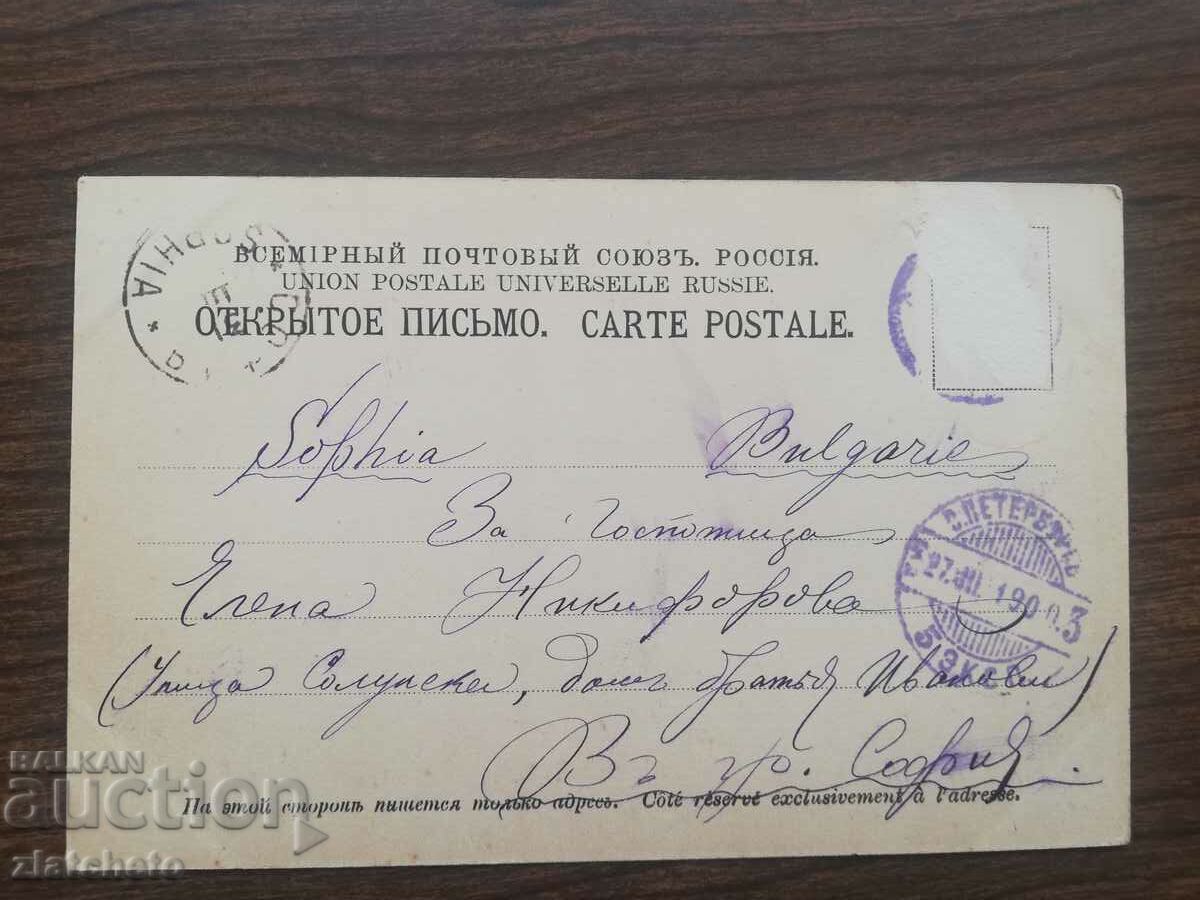 SOPHIA
ВСЕМІРНЫЙ ПОЧТОВЫЙ СОЮЗЪ. РОССІЯ.
UNION POSTALE UNIVERSELLE RUSSIE.
ОТКРЫТОЕ ПИСЬМО. CARTE POSTALE.
Sophia Bulgarie
За Госпожица
Елена Никифорова
С.ПЕТЕРБУРГЪ
27.III.1900.3
5 ЭКСП
(Улица Солунска, домъ братья Иванови)
Въ гр. София
На этой сторонѣ пишется только адресъ. Côté réservé exclusivement à l'adresse.
BALKAN
auction
zlatcheto